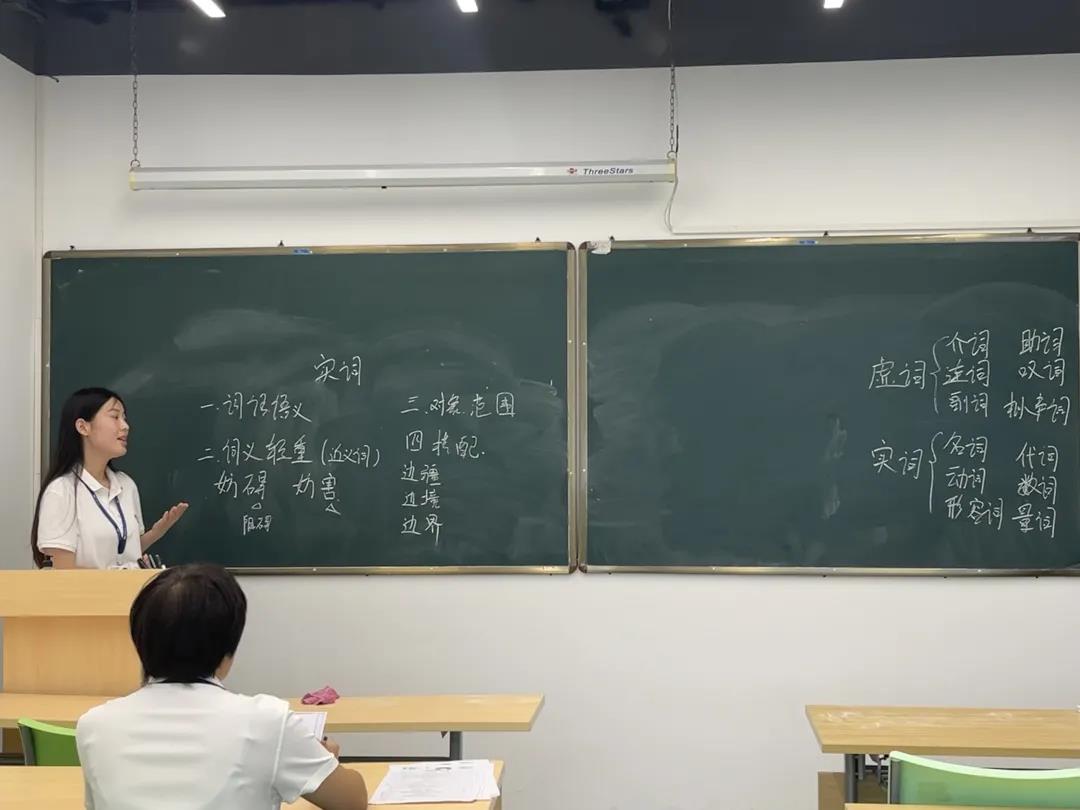 ThreeStars
实词
一.词语语义
二.词义轻重(近义词)
妨碍 妨害
阻碍
三.对象.范围
四 搭配.
边疆
边境
边界
虚词
介词 助词
连词 叹词
副词 拟声词
实词
名词 代词
动词 数词
形容词 量词